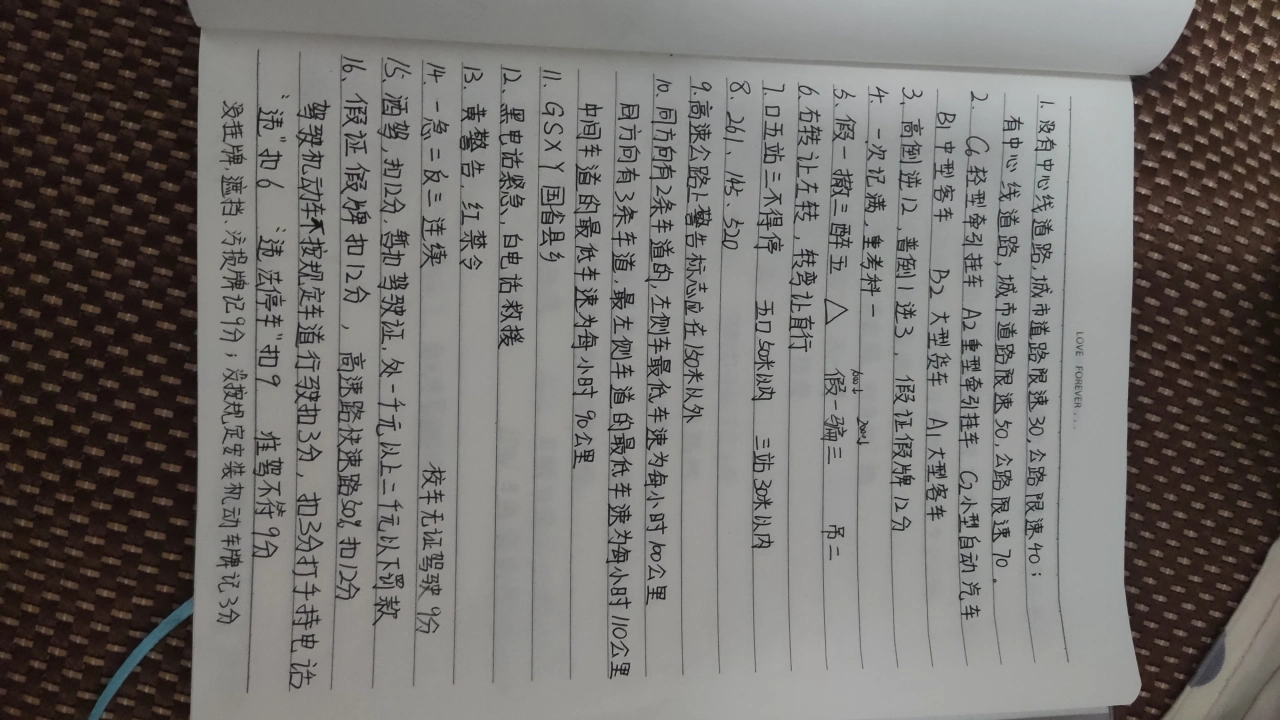 LOVE FOREVER...
1. 没有中心线道路,城市道路限速30,公路限速40;
有中心线道路,城市道路限速50,公路限速70.
2. C6轻型牵引挂车 A2重型牵引挂车 C2小型自动汽车
B1中型客车 B2大型货车 A1大型客车
3. 高倒逆12,普倒1逆3, 假证假牌12分
4. 一次记满,重考科一
5. 假一撤三醉五 △ 假一骗三 吊二
6. 右转让左转,转弯让直行
7. 口五站三不得停 五口50米以内 三站30米以内
8. 261、115、520
9. 高速公路上警告标志应在150米以外
10. 同方向有2条车道的,左侧车最低车速为每小时100公里
同方向有3条车道,最左侧车道的最低车速为每小时110公里
中间车道的最低车速为每小时90公里
11. GSXY国省县乡
12. 黑电话紧急、白电话救援
13. 黄警告,红禁令
14. 一急二反三连续 校车无证驾驶9分
15. 酒驾,扣12分,暂扣驾驶证,处一千元以上二千元以下罚款
16. 假证假牌扣12分, 高速路快速路50%扣12分
驾驶机动车不按规定车道行驶扣3分,扣3分打手持电话
“违”扣6 “违法停车”扣9 准驾不符9分
没挂牌,遮挡,污损牌记9分;没按规定安装机动车牌记3分